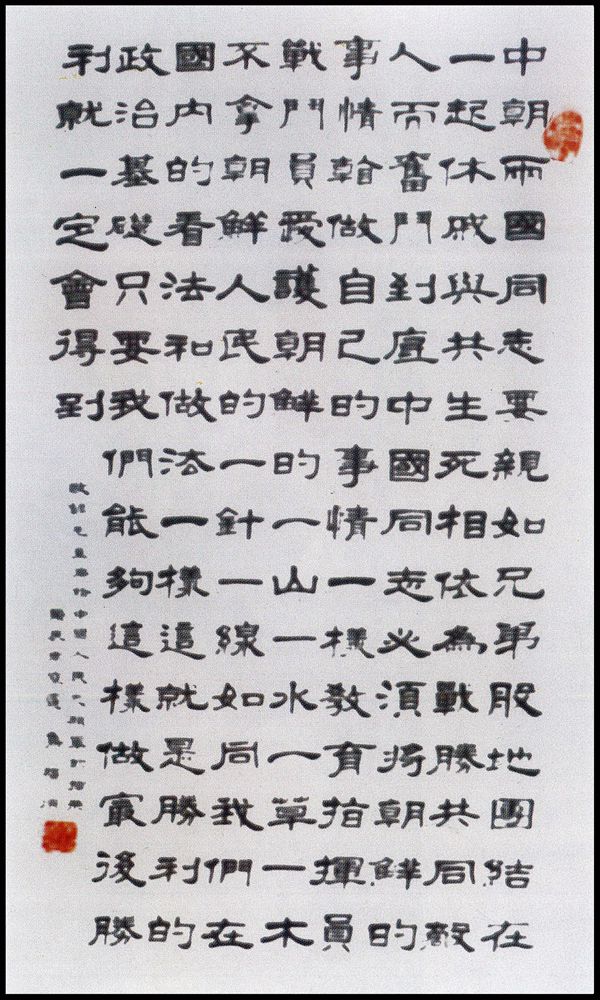 中朝兩國同志要親如兄弟股地團結在
一起休戚與共生死相依為戰勝共同敵
人而奮鬥到底中國同志必須將朝鮮的
事情幹做自己的事情一樣教有指揮員
戰鬥員愛護朝鮮的一山一水一草一木
不拿朝鮮人民的一針一線如同我們在
國內的看法和做法一樣這就是勝利的
政治基礎只要我們能夠這樣做最後勝
利就一定會得到
敬錄毛主席給中國人民志願軍